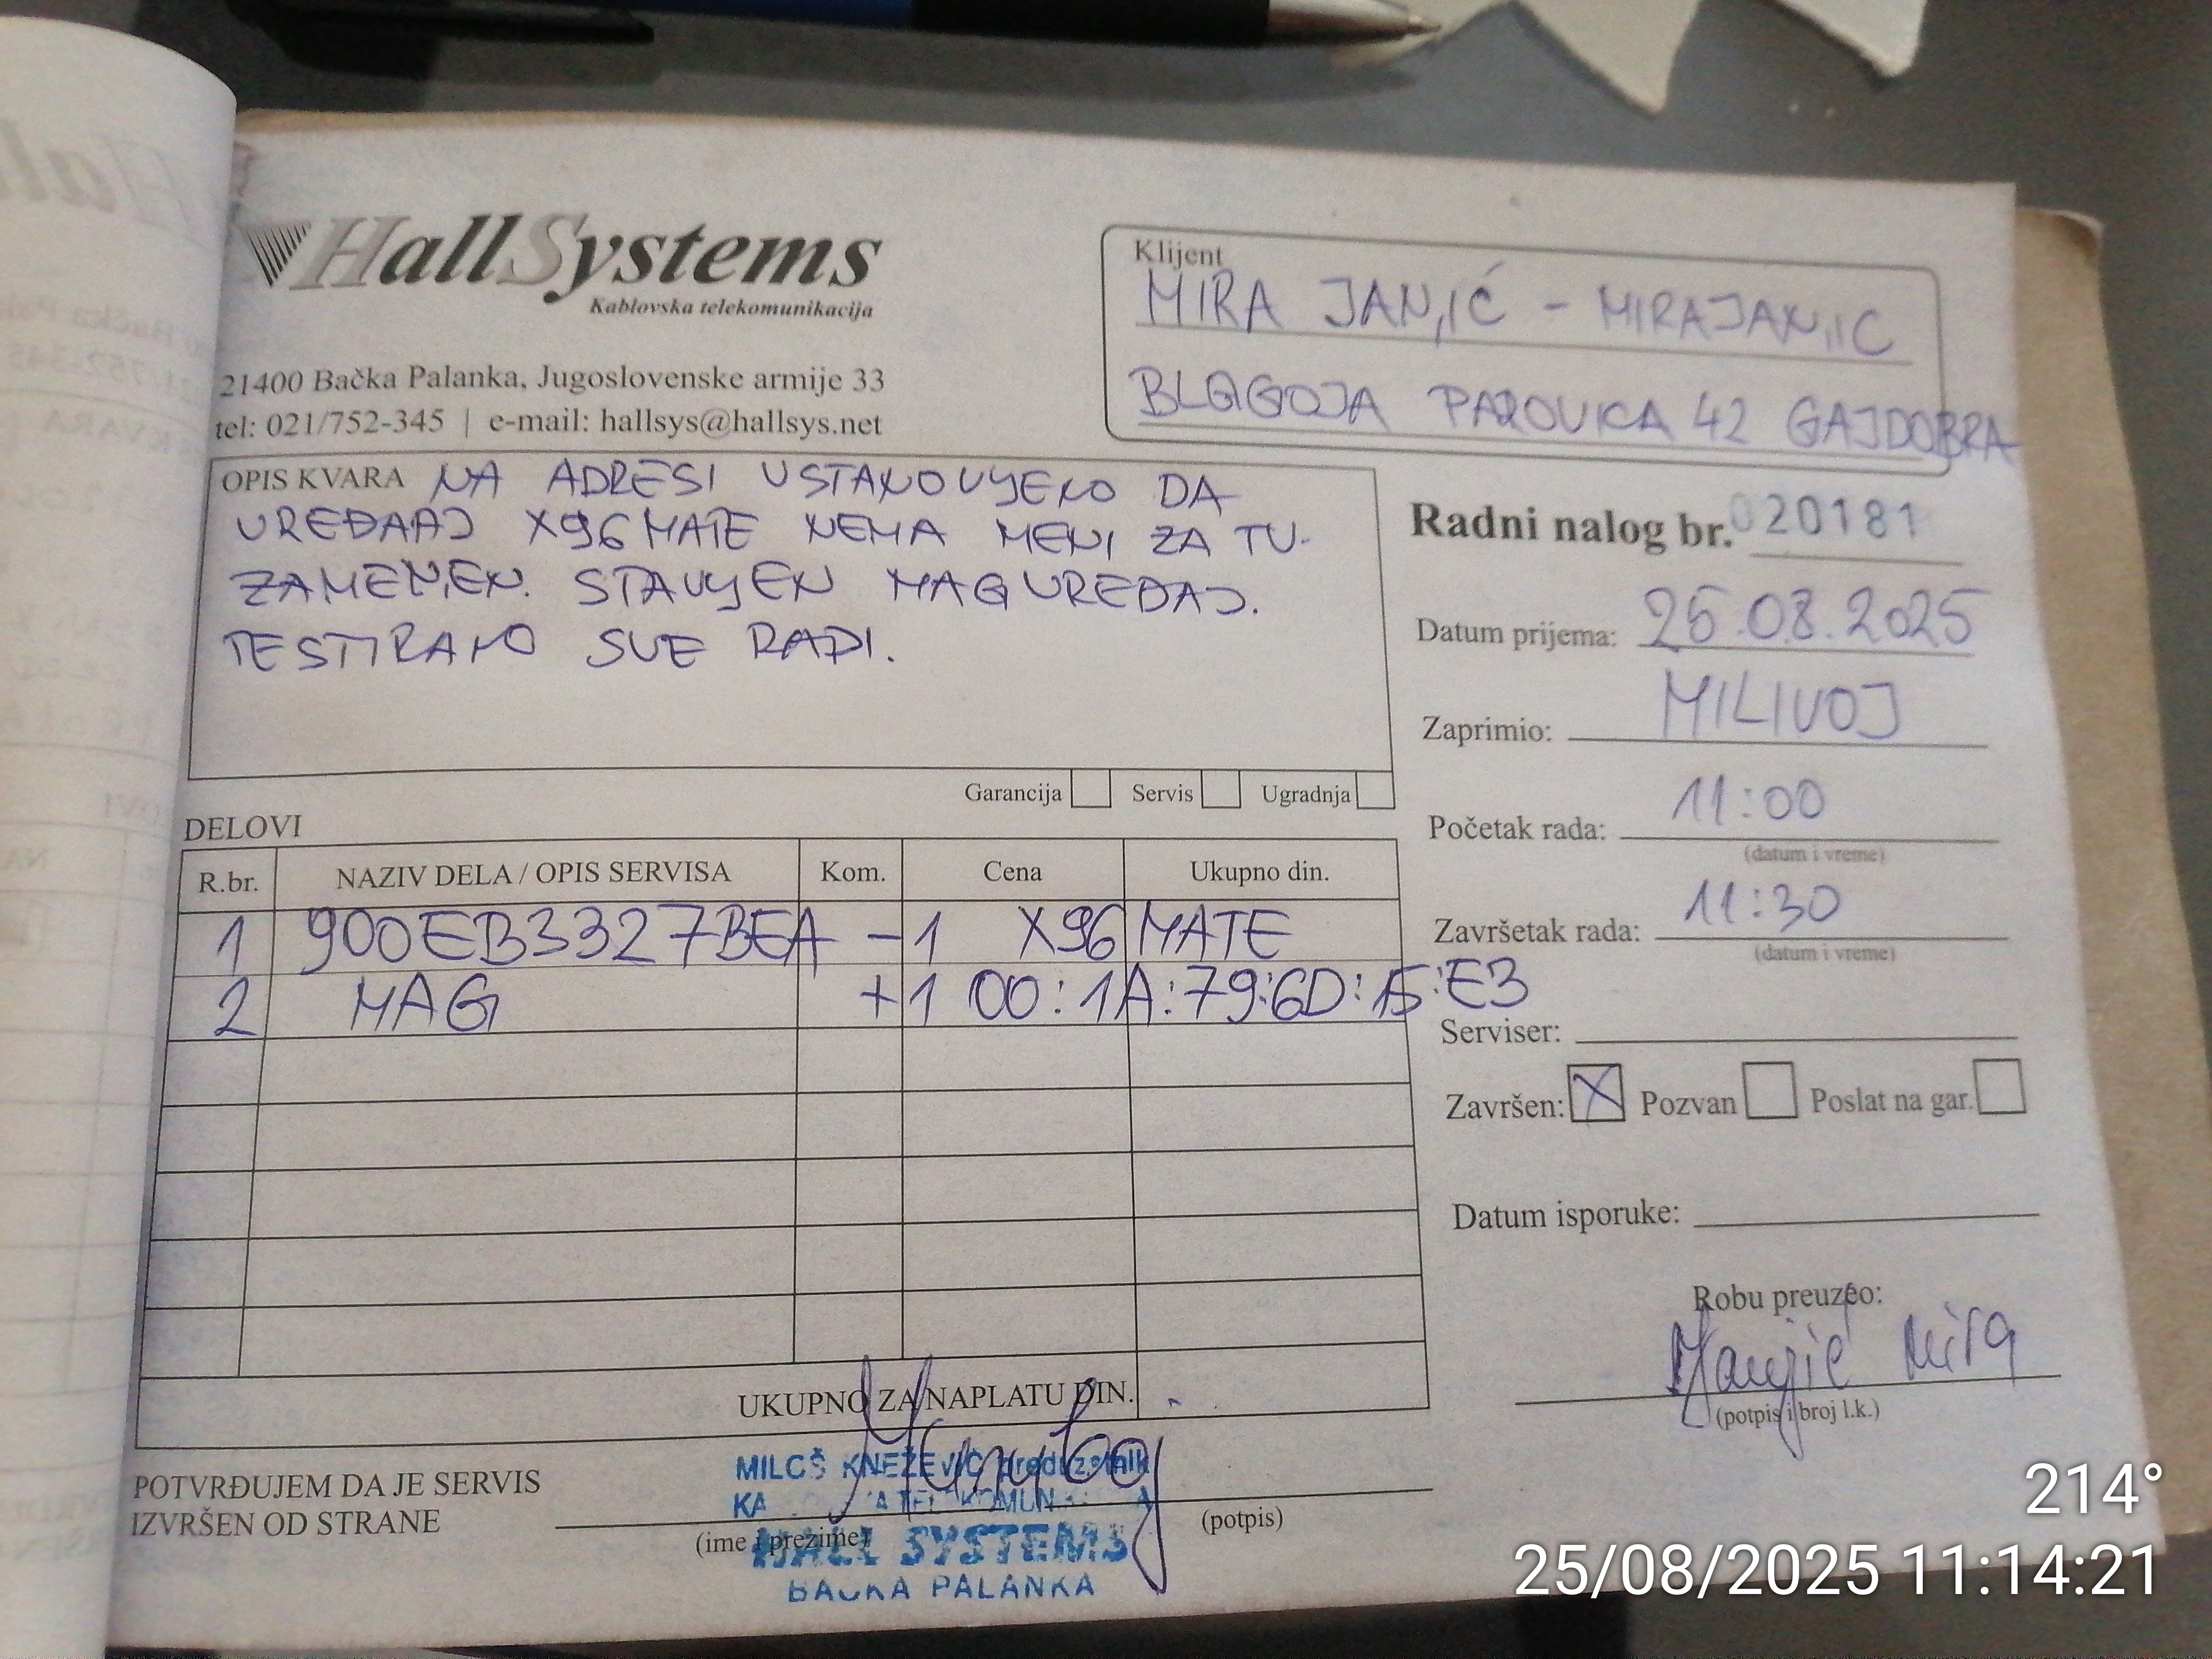 HallSystems
Kablovska telekomunikacija
21400 Bačka Palanka, Jugoslovenske armije 33
tel: 021/752-345 | e-mail: hallsys@hallsys.net
Klijent
MIRA JAN,IĆ - MIRAJAN,IC
BLAGOJA PAROVICA 42 GAJDOBRA
OPIS KVARA NA ADRESI USTANOVLJENO DA
UREĐAAJ X96MATE NEMA MENI ZA TV.
ZAMENJEN. STAVLJEN MAG UREĐAJ.
TESTIRANO SVE RADI.
Garancija Servis Ugradnja
Radni nalog br. 020181
Datum prijema: 25.08.2025
Zaprimio: MILIVOJ
Početak rada: 11:00
(datum i vreme)
Završetak rada: 11:30
(datum i vreme)
Serviser:
Završen: X Pozvan Poslat na gar.
Datum isporuke:
Robu preuzeo:
Mira
(potpis i broj l.k.)
DELOVI
R.br. NAZIV DELA / OPIS SERVISA Kom. Cena Ukupno din.
1 900EB3327BEA -1 X96 MATE
2 MAG +1 00:1A:79:6D:15:E3
UKUPNO ZA NAPLATU DIN. -
POTVRĐUJEM DA JE SERVIS
IZVRŠEN OD STRANE
(ime i prezime) (potpis)
MILOŠ KNEŽEVIĆ preduzetnik
HALL SYSTEMS
BAČKA PALANKA
214°
25/08/2025 11:14:21